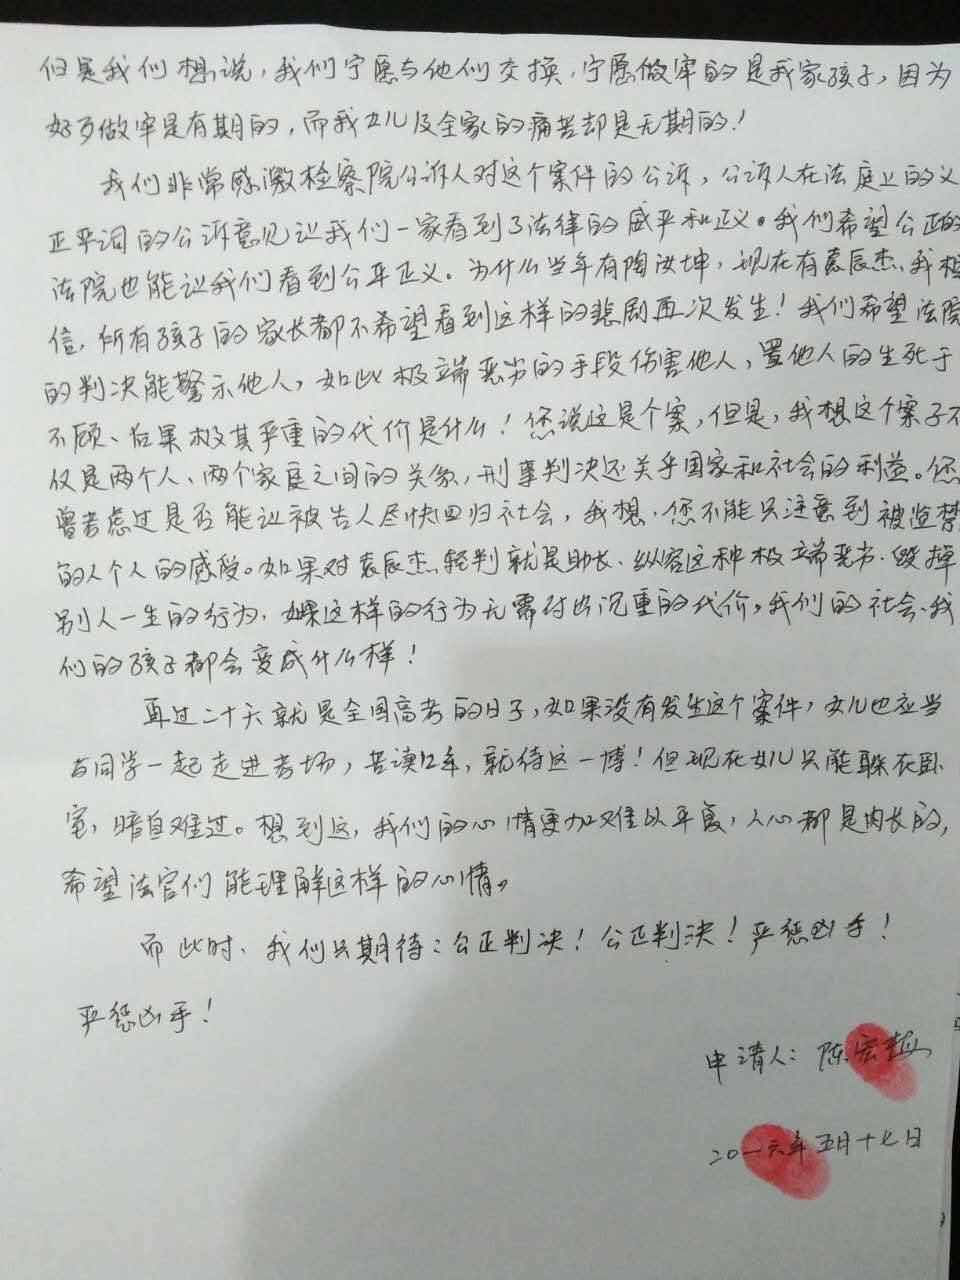 但是我们想说，我们宁愿与他们交换，宁愿做牢的是我家孩子，因为
好歹做牢是有期的，而我女儿及全家的痛苦却是无期的！
我们非常感激检察院公诉人对这个案件的公诉，公诉人在法庭上的义
正严词的公诉意见让我们一家看到了法律的威严和正义。我们希望公正的
法院也能让我们看到公平正义。为什么当年有陶汝坤，现在有袁辰杰、我相
信，所有孩子的家长都不希望看到这样的悲剧再次发生！我们希望法院
的判决能警示他人，如此极端恶劣的手段伤害他人，置他人的生死于
不顾、后果极其严重的代价是什么！您说这是个案，但是，我想这个案子不
仅是两个人、两个家庭之间的关系，刑事判决还关乎国家和社会的利益。您
曾考虑过是否能让被告人尽快回归社会，我想，您不能只注意到被监禁
的人个人的感受。如果对袁辰杰轻判就是助长、纵容这种极端恶劣、毁掉
别人一生的行为，如果这样的行为无需付出沉重的代价，我们的社会、我
们的孩子都会变成什么样！
再过二十天就是全国高考的日子，如果没有发生这个案件，女儿也应当
与同学一起走进考场，苦读12年，就待这一博！但现在女儿只能躲在卧
室，暗自难过。想到这，我们的心情更加难以平复，人心都是肉长的，
希望法官们能理解这样的心情。
而此时、我们只期待：公正判决！公正判决！严惩凶手！
严惩凶手！
申请人：陈宏
二〇一六年五月十七日